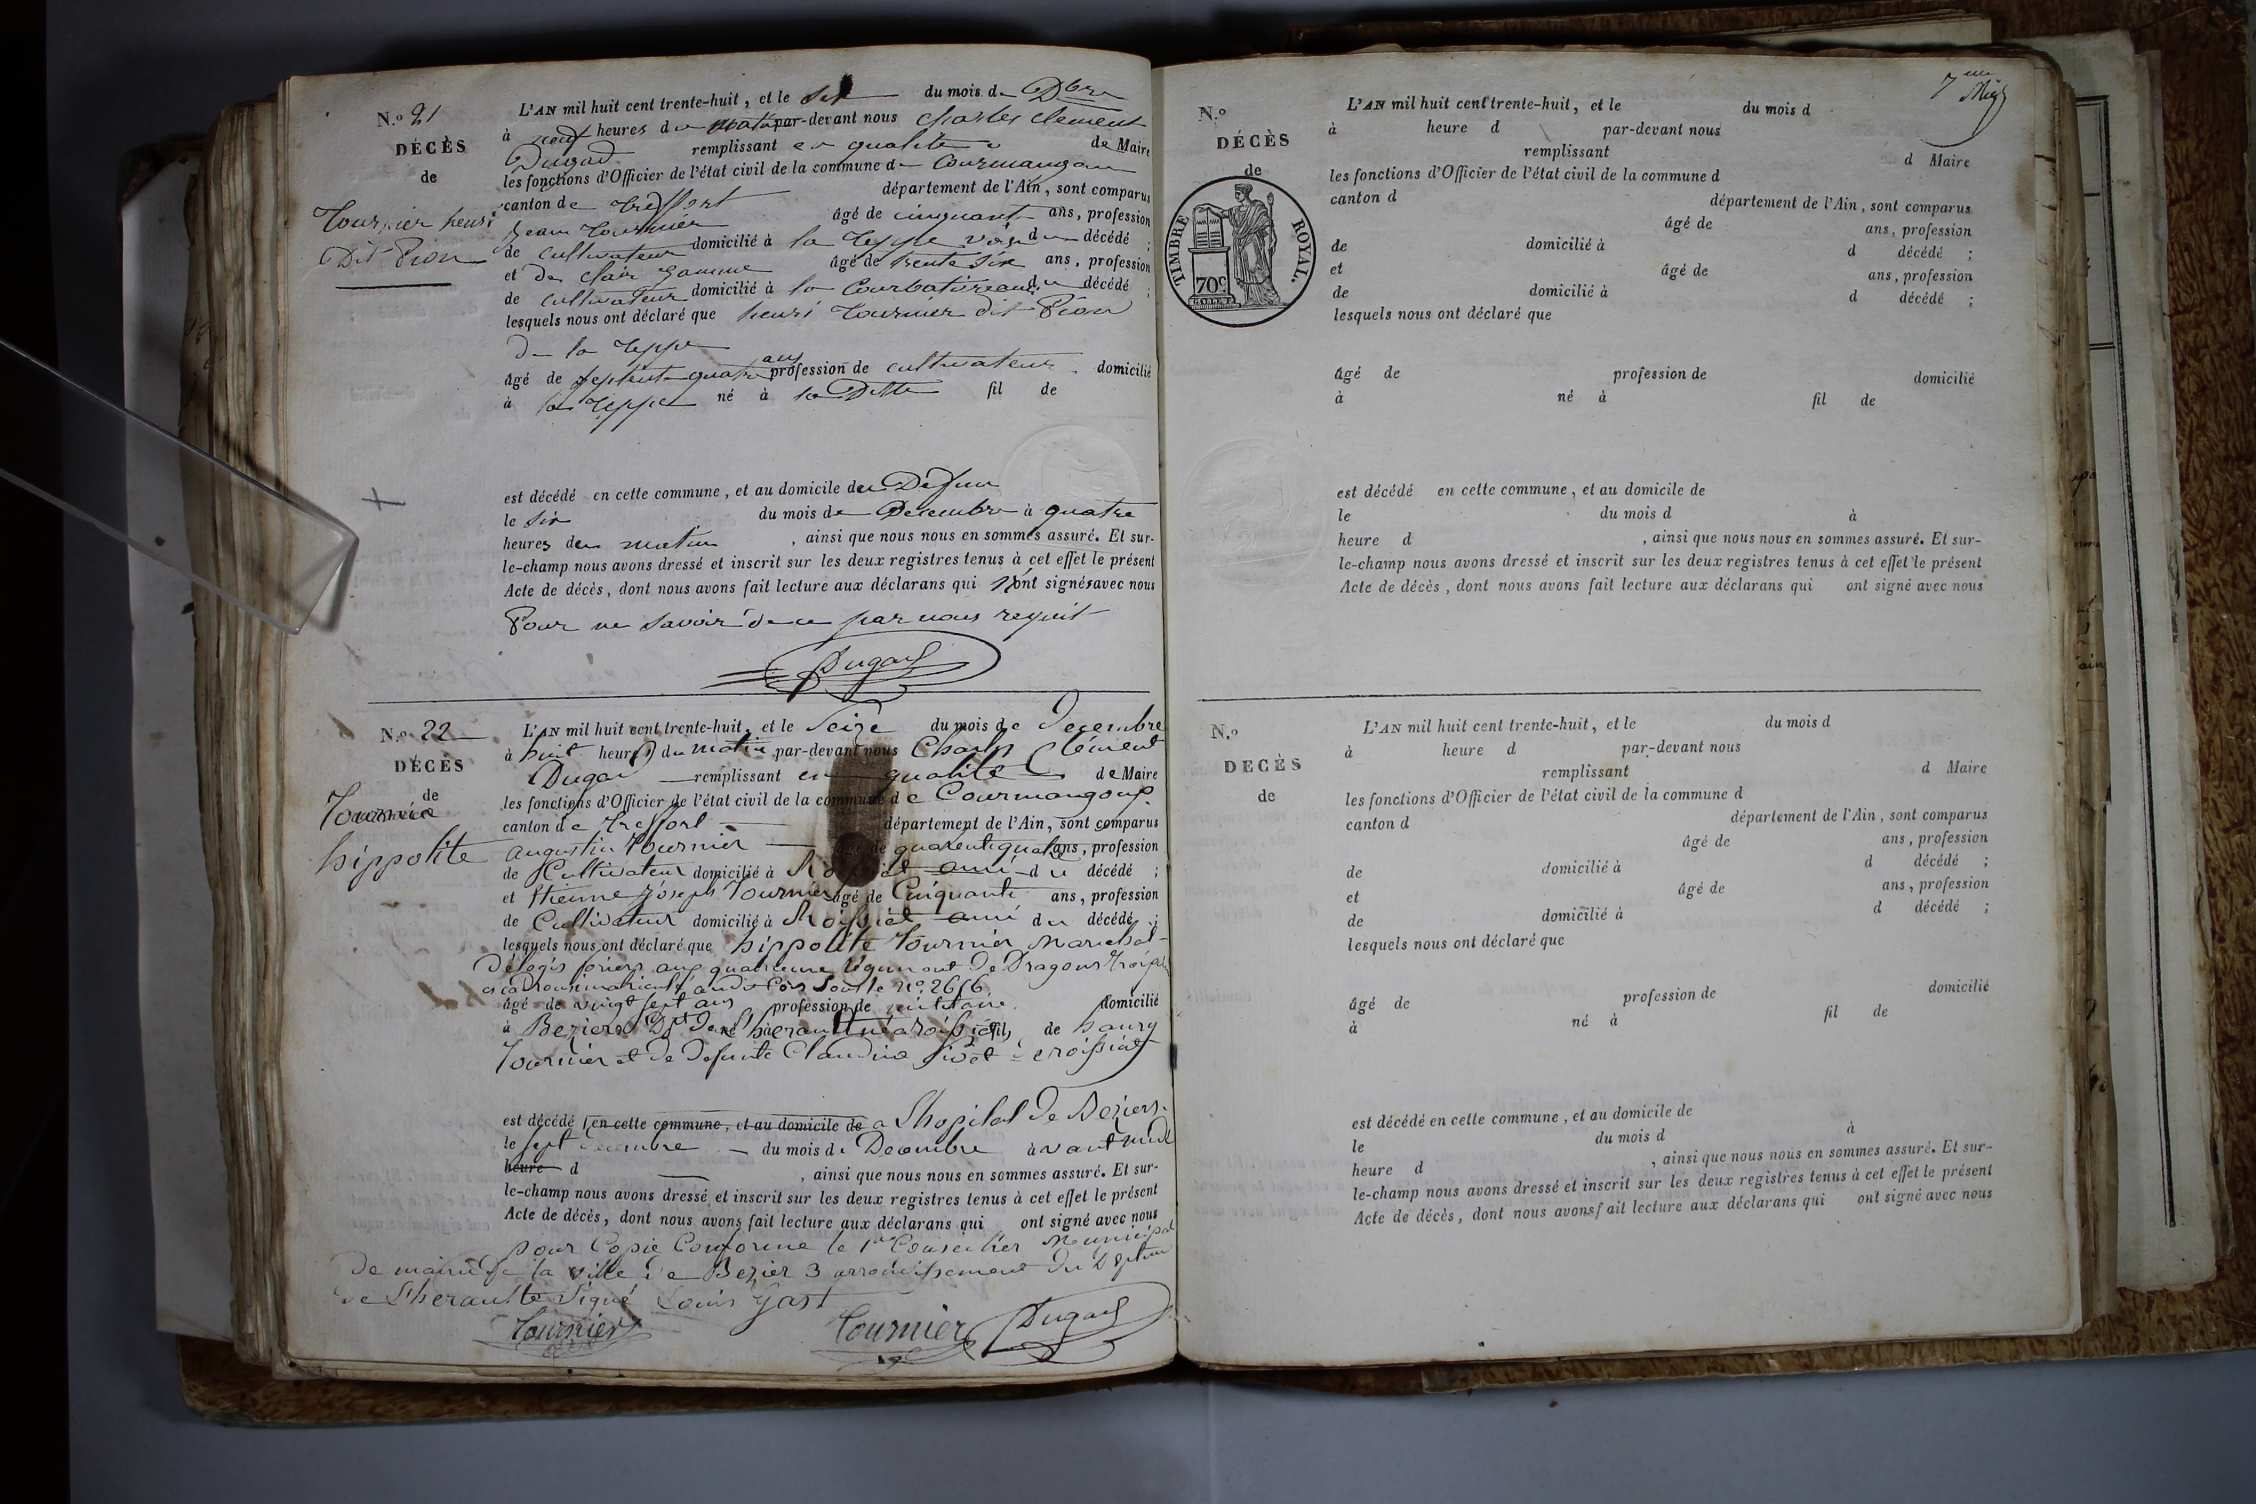 N.º 21
DÉCÈS
de
Tournier henri
Dit Pion
L'AN mil huit cent trente-huit, et le six du mois de Xbre
à neuf heures du matin par-devant nous Charles Clement
Dugad remplissant en qualité de Maire
les fonctions d'Officier de l'état civil de la commune de Courmangoux
canton de Treffort département de l'Ain, sont comparus
Jean Tournier âgé de cinquante ans, profession
de cultivateur domicilié à la Teppe voisin du décédé ;
et De Clair âgé de trente six ans, profession
de cultivateur domicilié à la du décédé ;
lesquels nous ont déclaré que henri Tournier dit Pion
De la Teppe
âgé de septente quatre ans profession de cultivateur domicilié
à la Teppe né à la Ditte fil de
est décédé en cette commune, et au domicile du Défun
le six du mois de Decembre à quatre
heures du matin , ainsi que nous nous en sommes assuré. Et sur-
le-champ nous avons dressé et inscrit sur les deux registres tenus à cet effet le présent
Acte de décès, dont nous avons fait lecture aux déclarans qui n'ont signés avec nous
Pour ne savoir de ce par nous requit
Dugad
N.º 22
DÉCÈS
de
Tournie
hippolite
L'AN mil huit cent trente-huit, et le Seize du mois de Decembre
à huit heure(s) du matin par-devant nous Charles Clément
Dugad remplissant en qualité de Maire
les fonctions d'Officier de l'état civil de la commune de Courmangoup
canton de Treffort département de l'Ain, sont comparus
augustin Tournier âgé de quarentequatre ans, profession
de Cultivateur domicilié à Roissiat ami du décédé ;
et Etienne Joseph Tournier âgé de Cinquante ans, profession
de Cultivateur domicilié à Roissiat ami du décédé ;
lesquels nous ont déclaré que hippolite Tournier Marechal-
Délogis foriers aux quatrieme régiment De Dragons
escadron immatriculé audit Cors Sous le nº 2616
âgé de vingt sept ans profession de militaire domicilié
à Beziers Dpt De né à fils de haury
Tournier et De Defunte Claudine Sivet à roissiat
est décédé en cette commune, et au domicile de a Lhopital De Beziers
le sept du mois de Decembre à vant midi
heure d , ainsi que nous nous en sommes assuré. Et sur-
le-champ nous avons dressé et inscrit sur les deux registres tenus à cet effet le présent
Acte de décès, dont nous avons fait lecture aux déclarans qui ont signé avec nous
pour Copie Conforme le 1er Conseiller Municipal
De mairie de la ville De Bezier 3 arrondissement Du
de Lheraulte Signé Louis Gast
Tournier Tournier Dugad
7me
N.º
DÉCÈS
de
TIMBRE ROYAL.
70c
L'AN mil huit cent trente-huit, et le du mois d
à heure d par-devant nous
remplissant d Maire
les fonctions d'Officier de l'état civil de la commune d
canton d département de l'Ain, sont comparus
âgé de ans, profession
de domicilié à d décédé ;
et âgé de ans, profession
de domicilié à d décédé ;
lesquels nous ont déclaré que
âgé de profession de domicilié
à né à fil de
est décédé en cette commune, et au domicile de
le du mois d à
heure d , ainsi que nous nous en sommes assuré. Et sur-
le-champ nous avons dressé et inscrit sur les deux registres tenus à cet effet le présent
Acte de décès, dont nous avons fait lecture aux déclarans qui ont signé avec nous
N.º
DÉCÈS
de
L'AN mil huit cent trente-huit, et le du mois d
à heure d par-devant nous
remplissant d Maire
les fonctions d'Officier de l'état civil de la commune d
canton d département de l'Ain, sont comparus
âgé de ans, profession
de domicilié à d décédé ;
et âgé de ans, profession
de domicilié à d décédé ;
lesquels nous ont déclaré que
âgé de profession de domicilié
à né à fil de
est décédé en cette commune, et au domicile de
le du mois d à
heure d , ainsi que nous nous en sommes assuré. Et sur-
le-champ nous avons dressé et inscrit sur les deux registres tenus à cet effet le présent
Acte de décès, dont nous avons fait lecture aux déclarans qui ont signé avec nous